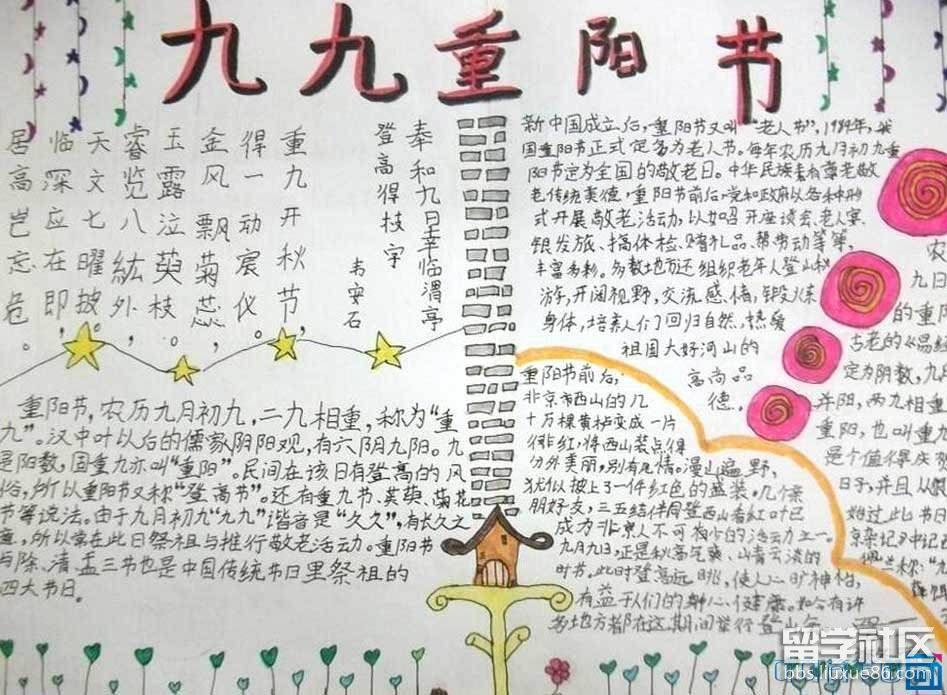 九九重阳节
奉和九日幸临渭亭
登高得枝宇
韦安石
重九开秋节，
得一动宸仪。
金风飘菊蕊，
玉露泣萸枝。
睿览八紘外，
天文七曜披。
临深应在即，
居高岂忘危。
重阳节，农历九月初九，二九相重，称为“重
九”。汉中叶以后的儒家阴阳观，有六阴九阳。九
是阳数，固重九亦叫“重阳”。民间在该日有登高的风
俗，所以重阳节又称“登高节”。还有重九节、茱萸、菊花
节等说法。由于九月初九“九九”谐音是“久久”，有长久之
意，所以常在此日祭祖与推行敬老活动。重阳节
与除、清、盂三节也是中国传统节日里祭祖的
四大节日。
新中国成立后，重阳节又叫“老人节”，1989年，我
国重阳节正式定名为老人节。每年农历九月初九重
阳节定为全国的敬老日。中华民族素有尊老敬
老传统美德，重阳节前后，党和政府以各种形
式开展敬老活动，以如召开座谈会、老人宴、
银发旅、搞体检、赠礼品、帮劳动等等，
丰富多彩。多数地方还组织老年人登山秋
游，开阔视野，交流感情，锻炼
身体，培养人们回归自然，热爱
祖国大好河山的
高尚品
德。
重阳节前后，
非京市西山的几
十万棵黄栌变成一片
绯红，将西山装点得
分外美丽，别有风情。漫山遍野，
犹似披上了一件红色的盛装。几个亲
朋好友，三五结伴同登西山看红叶已
成为北京人不可相少的活动之一。
九月九日，正是秋高气爽，山青云淡的
时节。此时登高远眺，使人心旷神怡，
有益于人们的身心健康。如今有许
多地方都在这期间举行登山年
农
九日
的重阳
古老的《易经
定为阴数，九
并阳，两九相重
重阳，也叫重九
是个值得庆祝
日子，并且从
始过此节日
京杂记》中记
留学社区
bbs.liuxue86.com